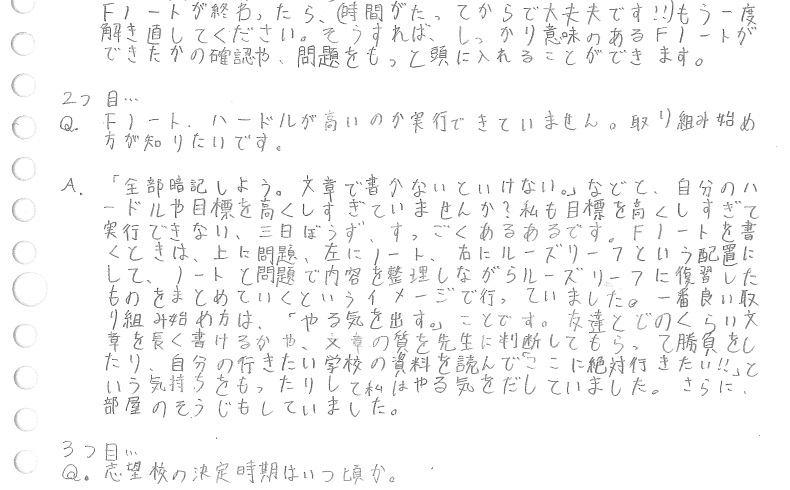 Fノートが終わったら、(時間がたってからで大丈夫です!!)もう一度
解き直してください。そうすれば、しっかり意味のあるFノートが
できたかの確認や、問題をもっと頭に入れることができます。
2つ目…
Q. Fノート、ハードルが高いのか実行できていません。取り組み始め
方が知りたいです。
A. 「全部暗記しよう。文章で書かないといけない。」などと、自分のハ
ードルや目標を高くしすぎていませんか?私も目標を高くしすぎて
実行できない、三日ぼうず、すっごくあるあるです。Fノートを書
くときは、上に問題、左にノート、右にルーズリーフという配置に
して、ノートと問題で内容を整理しながらルーズリーフに復習した
ものをまとめていくというイメージで行っていました。一番良い取
り組み始め方は、「やる気を出す。」ことです。友達とどのくらい文
章を長く書けるかや、文章の質を先生に判断してもらって勝負をし
たり、自分の行きたい学校の資料を読んで「ここに絶対行きたい!!」と
いう気持ちをもったりして私はやる気をだしていました。さらに、
部屋のそうじもしていました。
3つ目…
Q. 志望校の決定時期はいつ頃か。